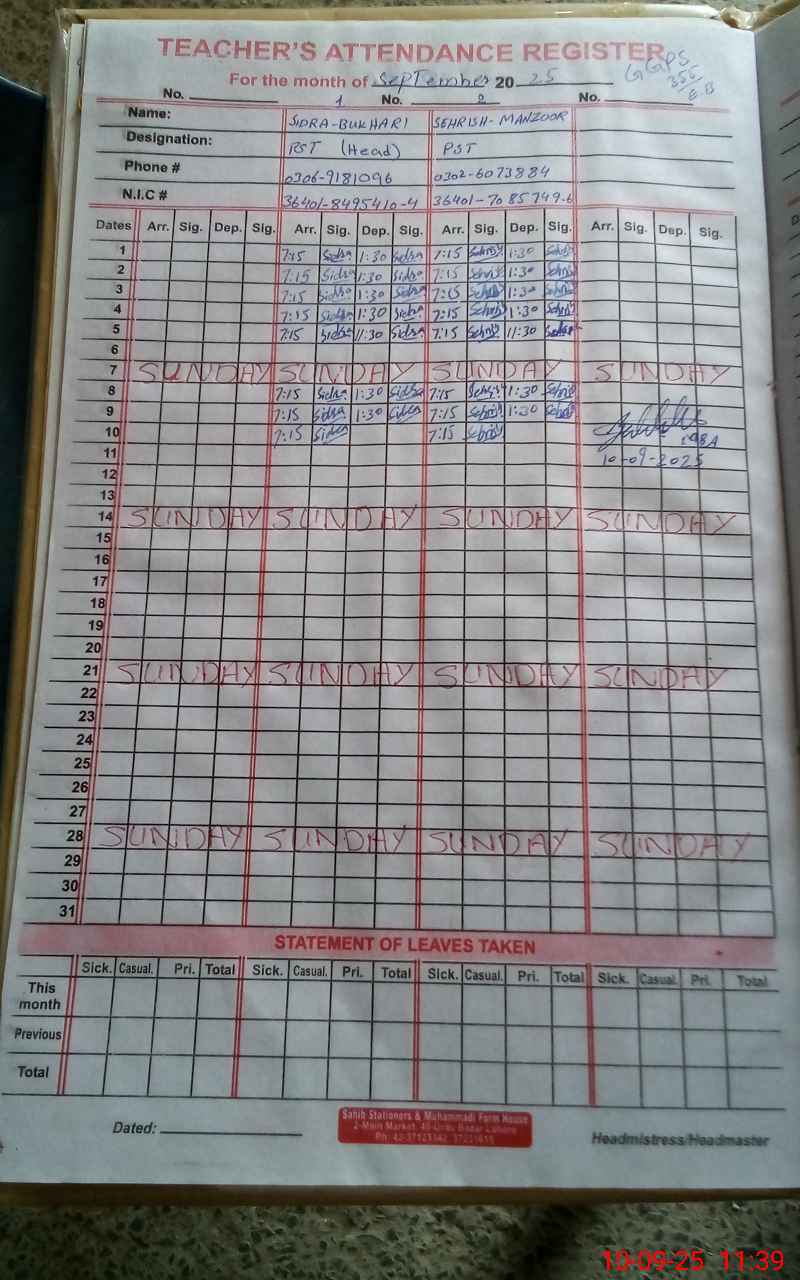 TEACHER'S ATTENDANCE REGISTER
For the month of September 2025
GGPS
355/E.B
No. 1 No. 2 No.
Name: SIDRA-BUKHARI SEHRISH-MANZOOR
Designation: PST (Head) PST
Phone # 0306-9181096 0302-6073884
N.I.C # 36401-8495410-4 36401-7085749-6
Dates Arr. Sig. Dep. Sig. Arr. Sig. Dep. Sig. Arr. Sig. Dep. Sig. Arr. Sig. Dep. Sig.
1 7:15 Sidra 1:30 Sidra 7:15 Sehrish 1:30 Sehrish
2 7:15 Sidra 1:30 Sidra 7:15 Sehrish 1:30 Sehrish
3 7:15 Sidra 1:30 Sidra 7:15 Sehrish 1:30 Sehrish
4 7:15 Sidra 1:30 Sidra 7:15 Sehrish 1:30 Sehrish
5 7:15 Sidra 11:30 Sidra 7:15 Sehrish 11:30 Sehrish
6
7 SUNDAY SUNDAY SUNDAY SUNDAY
8 7:15 Sidra 1:30 Sidra 7:15 Sehrish 1:30 Sehrish
9 7:15 Sidra 1:30 Sidra 7:15 Sehrish 1:30 Sehrish
10 7:15 Sidra 7:15 Sehrish
11 10-09-2025
12
13
14 SUNDAY SUNDAY SUNDAY SUNDAY
15
16
17
18
19
20
21 SUNDAY SUNDAY SUNDAY SUNDAY
22
23
24
25
26
27
28 SUNDAY SUNDAY SUNDAY SUNDAY
29
30
31
STATEMENT OF LEAVES TAKEN
Sick. Casual. Pri. Total Sick. Casual. Pri. Total Sick. Casual. Pri. Total Sick. Casual. Pri. Total
This month
Previous
Total
Dated:
Sahib Stationers & Muhammadi Form House
2-Main Market, 40-Urdu Bazar Lahore
Headmistress/Headmaster
10-09-25 11:39